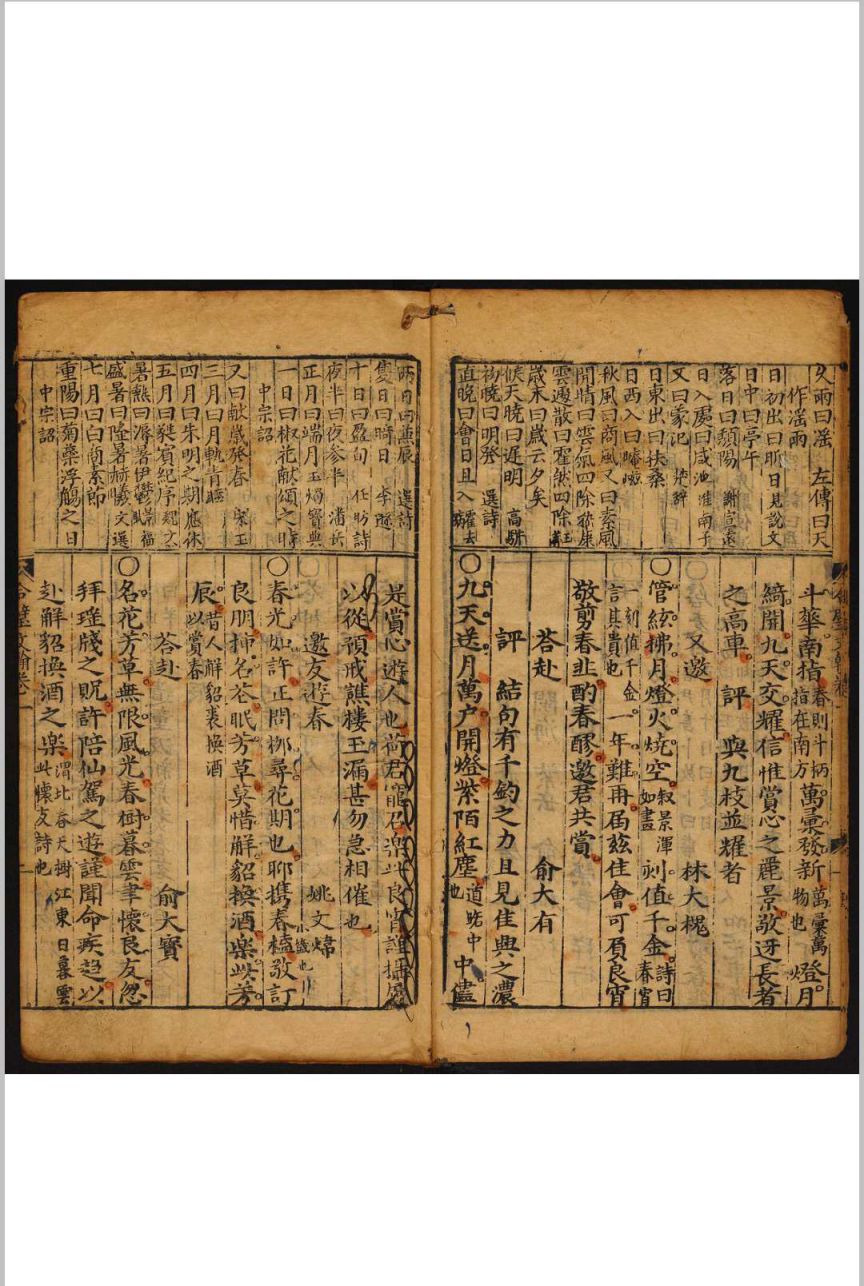 久雨曰滛 左傳曰天
作滛雨
日初出曰昕日見說文
日中曰亭午
落日曰頹陽 謝宣遠
日入處曰咸池 淮南子
又曰蒙汜 楚辭
日東出曰扶桑
日西入曰崦嵫
秋風曰商風又曰素風
開晴曰雲氣四除 嵇康
雲邊散曰霍然四除
歲末曰歲云夕矣
候天曉曰遲明 高駢
初曉曰明發 選詩
直晚曰會日且入
斗華南指 春則斗柄指在南方 萬彙發新 萬彙萬物也 燈月
綺開九天交耀信惟賞心之麗景敬迓長者
之高車 評 與九枝並耀者
又邀 林大棍
〇管絃拂月燈火燒空 叙景渾如畫 刻值千金 詩曰春宵
一刻值千金言其貴也 一年難再届兹佳會可負良宵
敬剪春韭酌春醪邀君共賞
答赴 俞大有
評 結句有千鈞之力且見佳興之濃
〇九天送月萬户開燈紫陌紅塵 道路中也 中儘
兩日曰兼辰 選詩
隻日曰時日 李瓍
十日曰盈旬 任昉詩
夜半曰夜参半 潘岳
正月曰端月 玉燭寶典
一日曰椒花献頌之時
中宗詔
又曰献歲發春 宋玉
三月曰月軌青
四月曰朱明之期應休
五月曰㽔賔紀序 魏文
暑熱曰溽暑伊鬱
盛暑曰隆暑赫曦 文選
七月曰白商素節
重陽曰菊蘂浮觴之日
中宗詔
是賞心遊人也尚君寵召樂此良宵誼攝
以從預戒譙樓玉漏甚勿急相催也
邀友遊春 姚文煒
〇春光如許正問栁尋花期也聊携春榼敬訂
良朋挿名花眠芳草莫惜解貂換酒樂此芳
辰 昔人解貂裘換酒以賞春
答赴 俞大賓
〇名花芳草無限風光春樹暮雲聿懷良友忽
拜瑶牋之貺許陪仙駕之遊謹聞命疾趋以
赴解貂換酒之樂 渭北春天樹江東日暮雲此懷友詩也
合璧文翰卷一